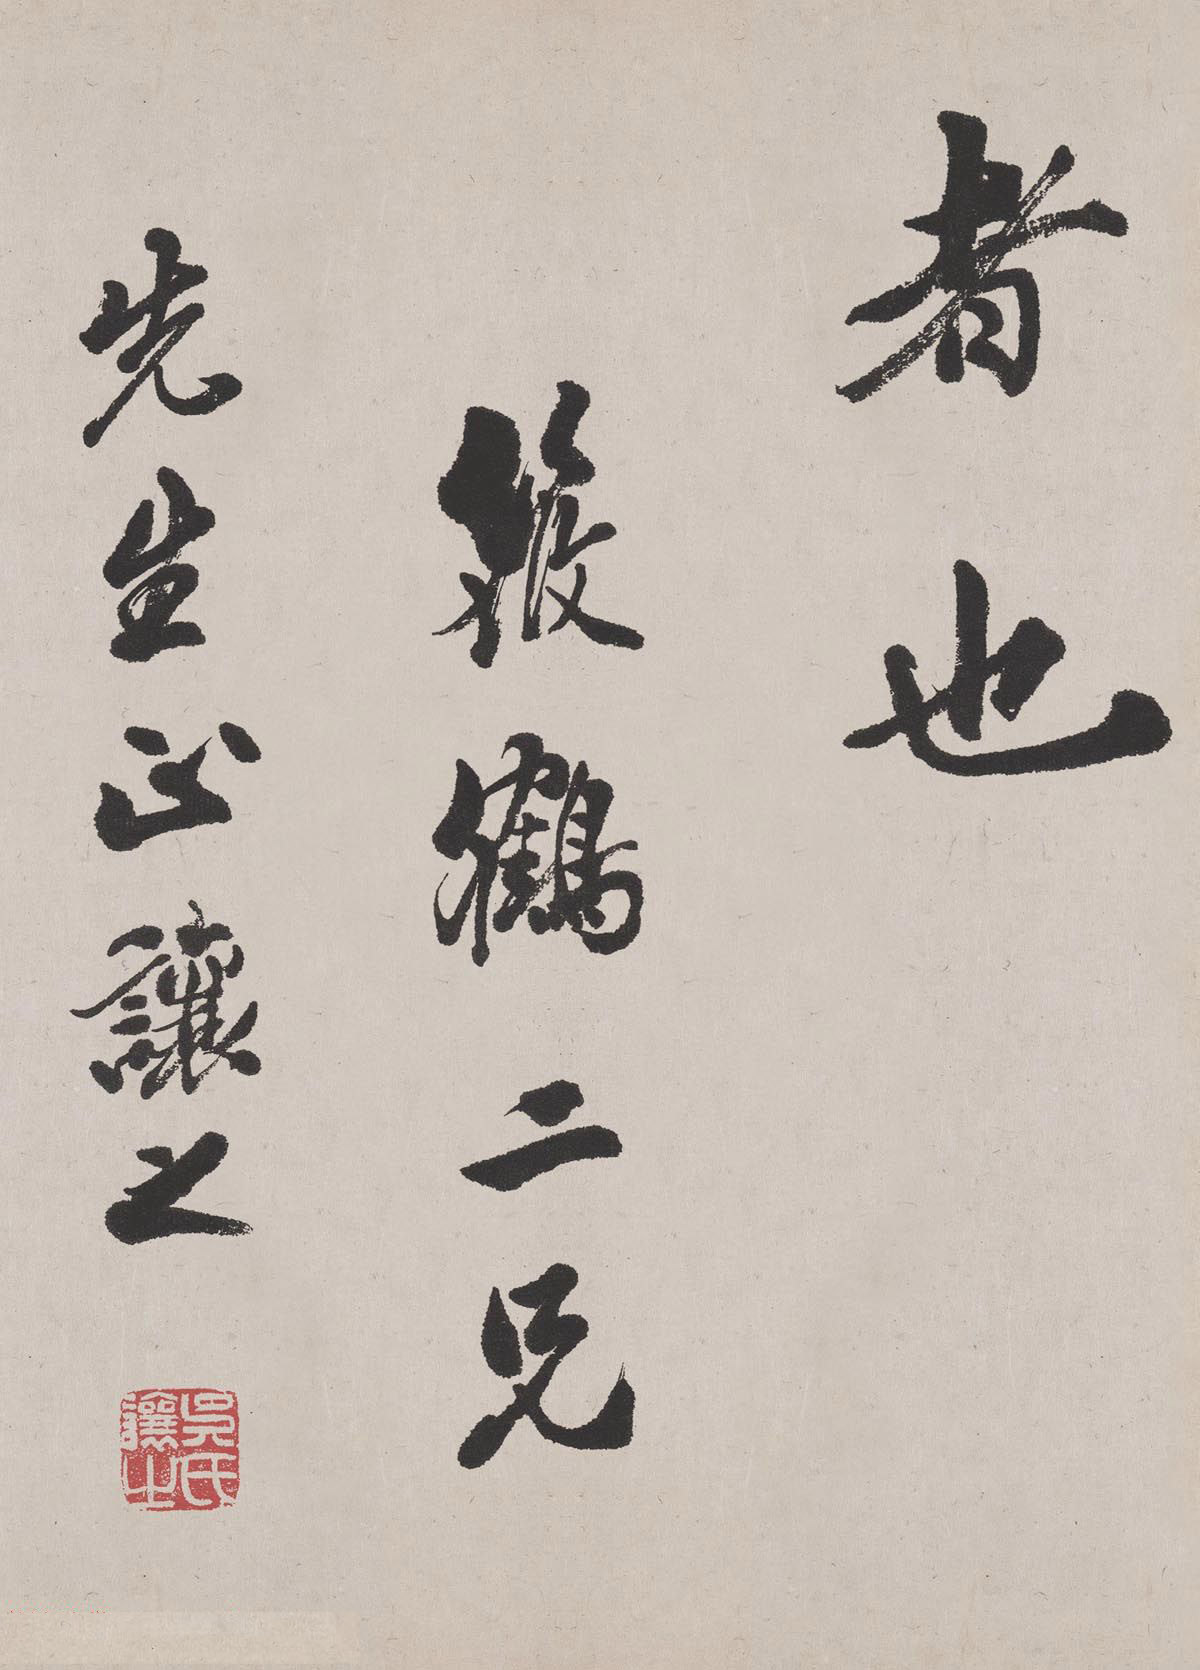 者也
筱鶴二兄
先生正讓之
吳氏
讓之